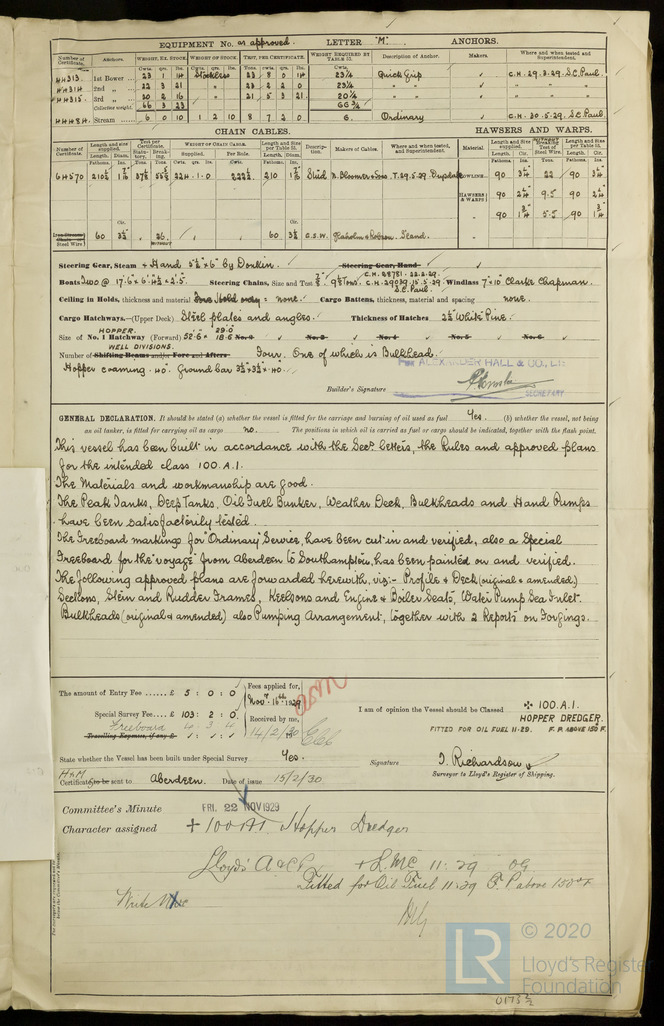 EQUIPMENT No. as approved. LETTER "M". ANCHORS.
Number of Certificate. Anchors. WEIGHT, EX. STOCK. WEIGHT OF STOCK. TEST, PER CERTIFICATE. WEIGHT REQUIRED BY TABLE 53. Description of Anchor. Makers. Where and when tested and Superintendent.
Cwts. qrs. lbs. Cwts. qrs. lbs. Tons. cwts. qrs. lbs. Cwts.
HH313. 1st Bower ... 23 1 14 Stockless 23 8 0 14 23¼ Quick Grip ✓ C.H. 29.3.29. S.C. Paul.
HH314 2nd „ ... 22 3 21 " 23 2 2 0 23¼ " " ✓ " " "
HH315. 3rd „ ... 20 2 16 " 21 5 3 21 20¼ " " ✓ " " "
Collective weight. 66 3 23 66¾
HH484. Stream ... 6 0 10 1 2 10 8 7 2 0 6. Ordinary ✓ C.H. 30.5.29. S.C. Paul.
CHAIN CABLES. HAWSERS AND WARPS.
Number of Certificate. Length and size supplied. Test per Certificate. WEIGHT OF CHAIN CABLE. Length and size per Table 53. Description. Makers of Cables. Where and when tested, and Superintendent. Material. Length and size supplied. Breaking Test of Steel Wire. Length and Size per Table 53.
Length. Diam. Statutory. Breaking. Supplied. Per Rule. Length. Diam. Length. Cir. Length. Cir.
Fathoms. Ins. Tons. Tons. Cwts. qrs. lbs. Cwts. Fathoms. Ins. Fathoms. Ins. Tons. Fathoms. Ins.
64570 210½ 224.1.0 222½ 210 Stud N. Bloomer & Sons. T.29.5.29. TOWLINE 90 3¼ 22 90 3¼
HAWSERS & WARPS 90 2¼ 9.5 90 2¼
90 5.5 90
Steel Wire 60 3½ 26. 60 3½ G.S.W. Glaholm & Robson. S'land.
Steering Gear, Steam & Hand 5½"×6" by Donkin. ✓ Steering Gear, Hand
C.H. 28781. 22.2.29.
Boats Two @ 17'.6"×6'. Steering Chains, Size and Test 9½ Tons. C.H. 29039. 15.5.29. Windlass 7"×10" Clarke Chapman.
S.C. Paul.
Ceiling in Holds, thickness and material none. ✓ Cargo Battens, thickness, material and spacing none.
Cargo Hatchways.—(Upper Deck) Steel plates and angles. Thickness of Hatches 2½" White Pine.
HOPPER. 29.0
Size of No. 1 Hatchway (Forward) 52'.6" × 18.6 No. 2 No. 3 No. 4 No. 5 No. 6
WELL DIVISIONS.
Number of Shifting Beams and/or Fore and Afters Four. One of which is Bulkhead.
Hopper coaming .40". Ground bar 3½"×3½"×.40".
For ALEXANDER HALL & CO., LTD
Builder's Signature SECRETARY
GENERAL DECLARATION. It should be stated (a) whether the vessel is fitted for the carriage and burning of oil used as fuel Yes. (b) whether the vessel, not being
an oil tanker, is fitted for carrying oil as cargo no. The positions in which oil is carried as fuel or cargo should be indicated, together with the flash point.
This vessel has been built in accordance with the Secys. letters, the Rules and approved plans
for the intended class 100.A.1.
The Materials and workmanship are good.
The Peak Tanks, Deep Tanks, Oil Fuel Bunker, Weather Deck, Bulkheads and Hand Pumps
have been satisfactorily tested.
The Freeboard markings for "Ordinary" Service, have been cut in and verified, also a Special
Freeboard for the "voyage" from Aberdeen to Southampton, has been painted on and verified.
The following approved plans are forwarded herewith, viz:- Profile & Deck (original & amended)
Sections, Stern and Rudder Frames, Keelsons and Engine & Boiler Seats, Water Pump Sea Inlet.
Bulkheads (original & amended) also Pumping Arrangement, together with 2 Reports on Forgings.
The amount of Entry Fee ...... £ 5 : 0 : 0
Fees applied for,
Nov. 16th 1929
Special Survey Fee.... £ 103 : 2 : 0
Received by me,
Freeboard 4 3 4
Travelling Expenses, if any £
14/2/30
I am of opinion the Vessel should be Classed ✠ 100.A.1.
HOPPER DREDGER.
FITTED FOR OIL FUEL 11.29. F.P. ABOVE 150°F.
State whether the Vessel has been built under Special Survey Yes. Signature J. Richardson
Surveyor to Lloyd's Register of Shipping.
H & M
Certificate to be sent to Aberdeen. Date of issue 15/2/30
Committee's Minute FRI. 22 NOV 1929
Character assigned + 100 A1 Hopper Dredger
Lloyd's A & CP + LMC 11.29 OG
Fitted for Oil Fuel 11.29 F.P above 150°F
Write
© 2020
LR
Lloyd's Register
Foundation